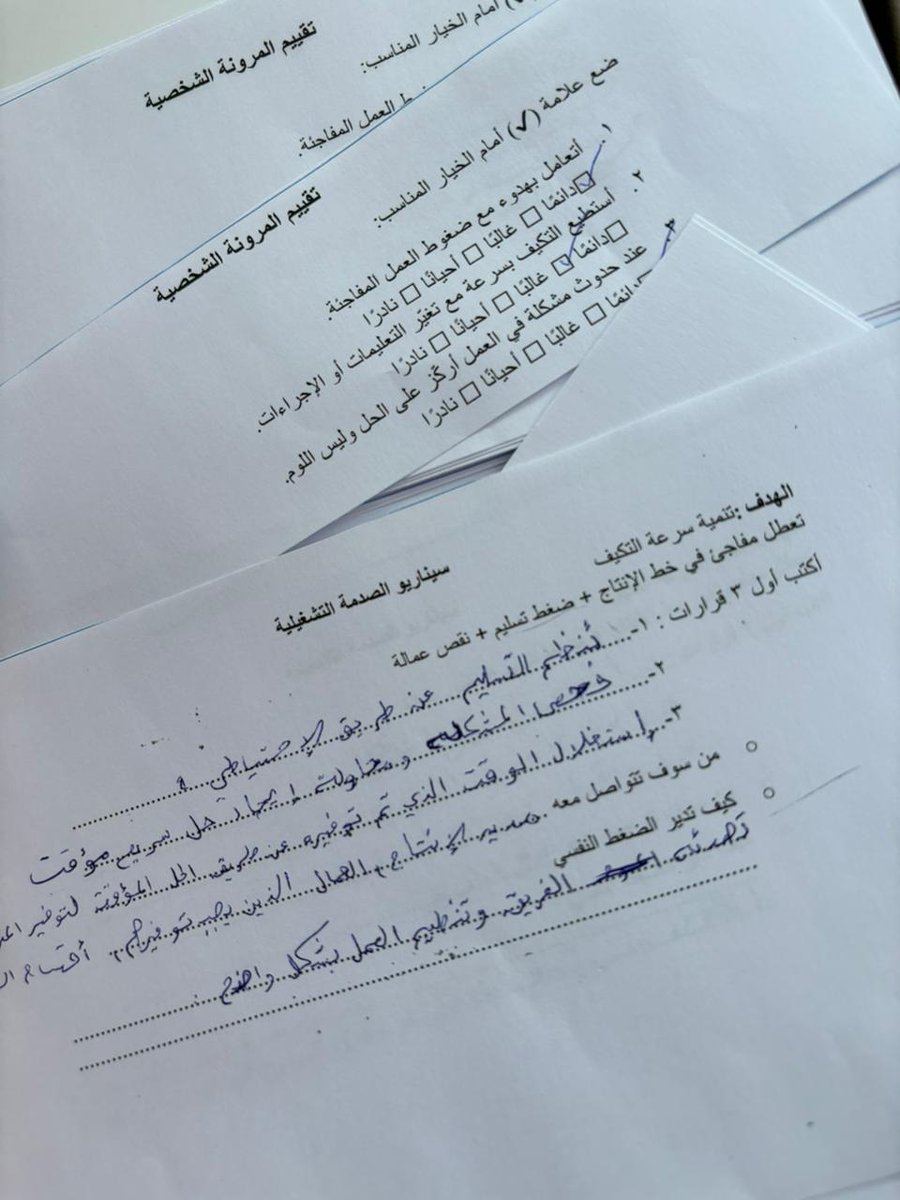 تقييم المرونة الشخصية
) أمام الخيار المناسب:
ط العمل المفاجئة.
تقييم المرونة الشخصية
ضع علامة (✓) أمام الخيار المناسب:
١. أتعامل بهدوء مع ضغوط العمل المفاجئة.
☑ دائمًا ☐ غالبًا ☐ أحيانًا ☐ نادرًا
٢. أستطيع التكيف بسرعة مع تغيّر التعليمات أو الإجراءات.
☐ دائمًا ☑ غالبًا ☐ أحيانًا ☐ نادرًا
٣. عند حدوث مشكلة في العمل أركّز على الحل وليس اللوم.
ائمًا ☐ غالبًا ☐ أحيانًا ☐ نادرًا
سيناريو الصدمة التشغيلية
الهدف :تنمية سرعة التكيف
تعطل مفاجئ في خط الإنتاج + ضغط تسليم + نقص عمالة
اكتب أول ٣ قرارات : ١- تنظيم التسليم عن طريق الإحتياطي
٢- فحص المشكلة ومحاولة إيجاد حل سريع مؤقت
٣- إستغلال الوقت الذي تم توفيره عن طريق الحل المؤقتة لتوفير
○ من سوف تتواصل معه مدير الإنتاج، العمال الذين يجب توفيرهم، أقسام
○ كيف تدير الضغط النفسي
تهدئة الفريق وتنظيم العمل بشكل واضح